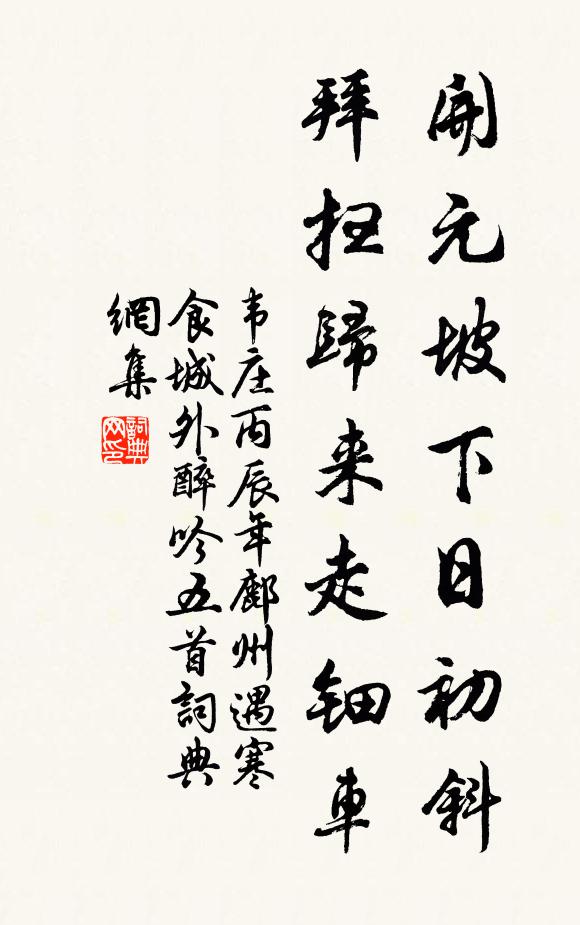 開元坡下日初斜
拜掃歸来走鈿車
韦庄丙辰年鄜州遇寒
食城外醉吟五首詞典
網集
詞典
网印